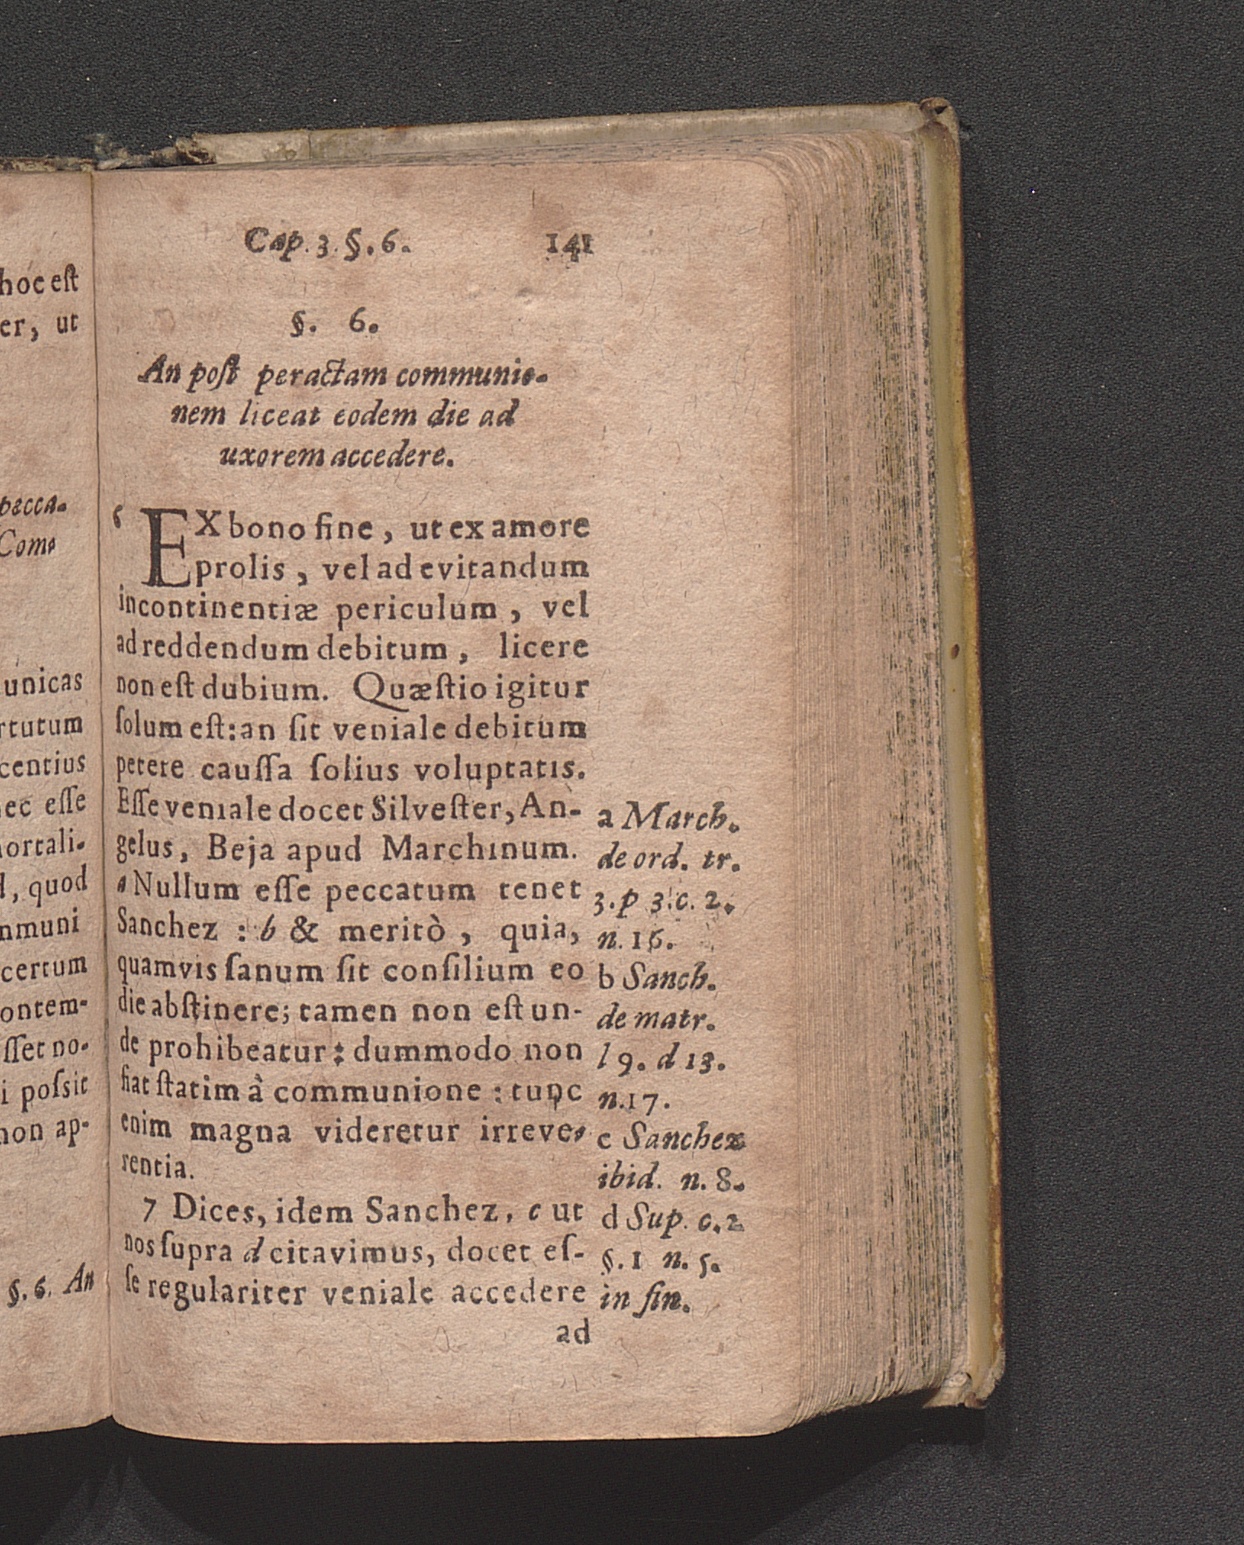 hoc eſt
er, ut
pecca-
unicas
rtutum
centius
nec eſſe
mortali-
l, quod
mmuni
certum
contem-
ſſet no-
i poſsit
non ap-
§. 6. An
Cap. 3. §. 6. 141
§. 6.
An poſt peractam communio-
nem liceat eodem die ad
uxorem accedere.
6 EX bono fine, ut ex amore
prolis, vel ad evitandum
incontinentiæ periculum, vel
ad reddendum debitum, licere
non eſt dubium. Quæſtio igitur
ſolum eſt: an ſit veniale debitum
petere cauſſa ſolius voluptatis.
Eſſe veniale docet Silveſter, An-
gelus, Beja apud Marchinum.
a Nullum eſſe peccatum tenet
Sanchez : b & meritò, quia,
quamvis ſanum ſit conſilium eo
die abſtinere; tamen non eſt un-
de prohibeatur: dummodo non
fiat ſtatim à communione : tunc
enim magna videretur irreve-
rentia.
7 Dices, idem Sanchez, c ut
nos ſupra d citavimus, docet eſ-
ſe regulariter veniale accedere
ad
a March.
de ord. tr.
3. p 3. c. 2.
n. 16.
b Sanch.
de matr.
l 9. d 13.
n. 17.
c Sanchez
ibid. n. 8.
d Sup. c. 2
§. 1 n. 5.
in fin.